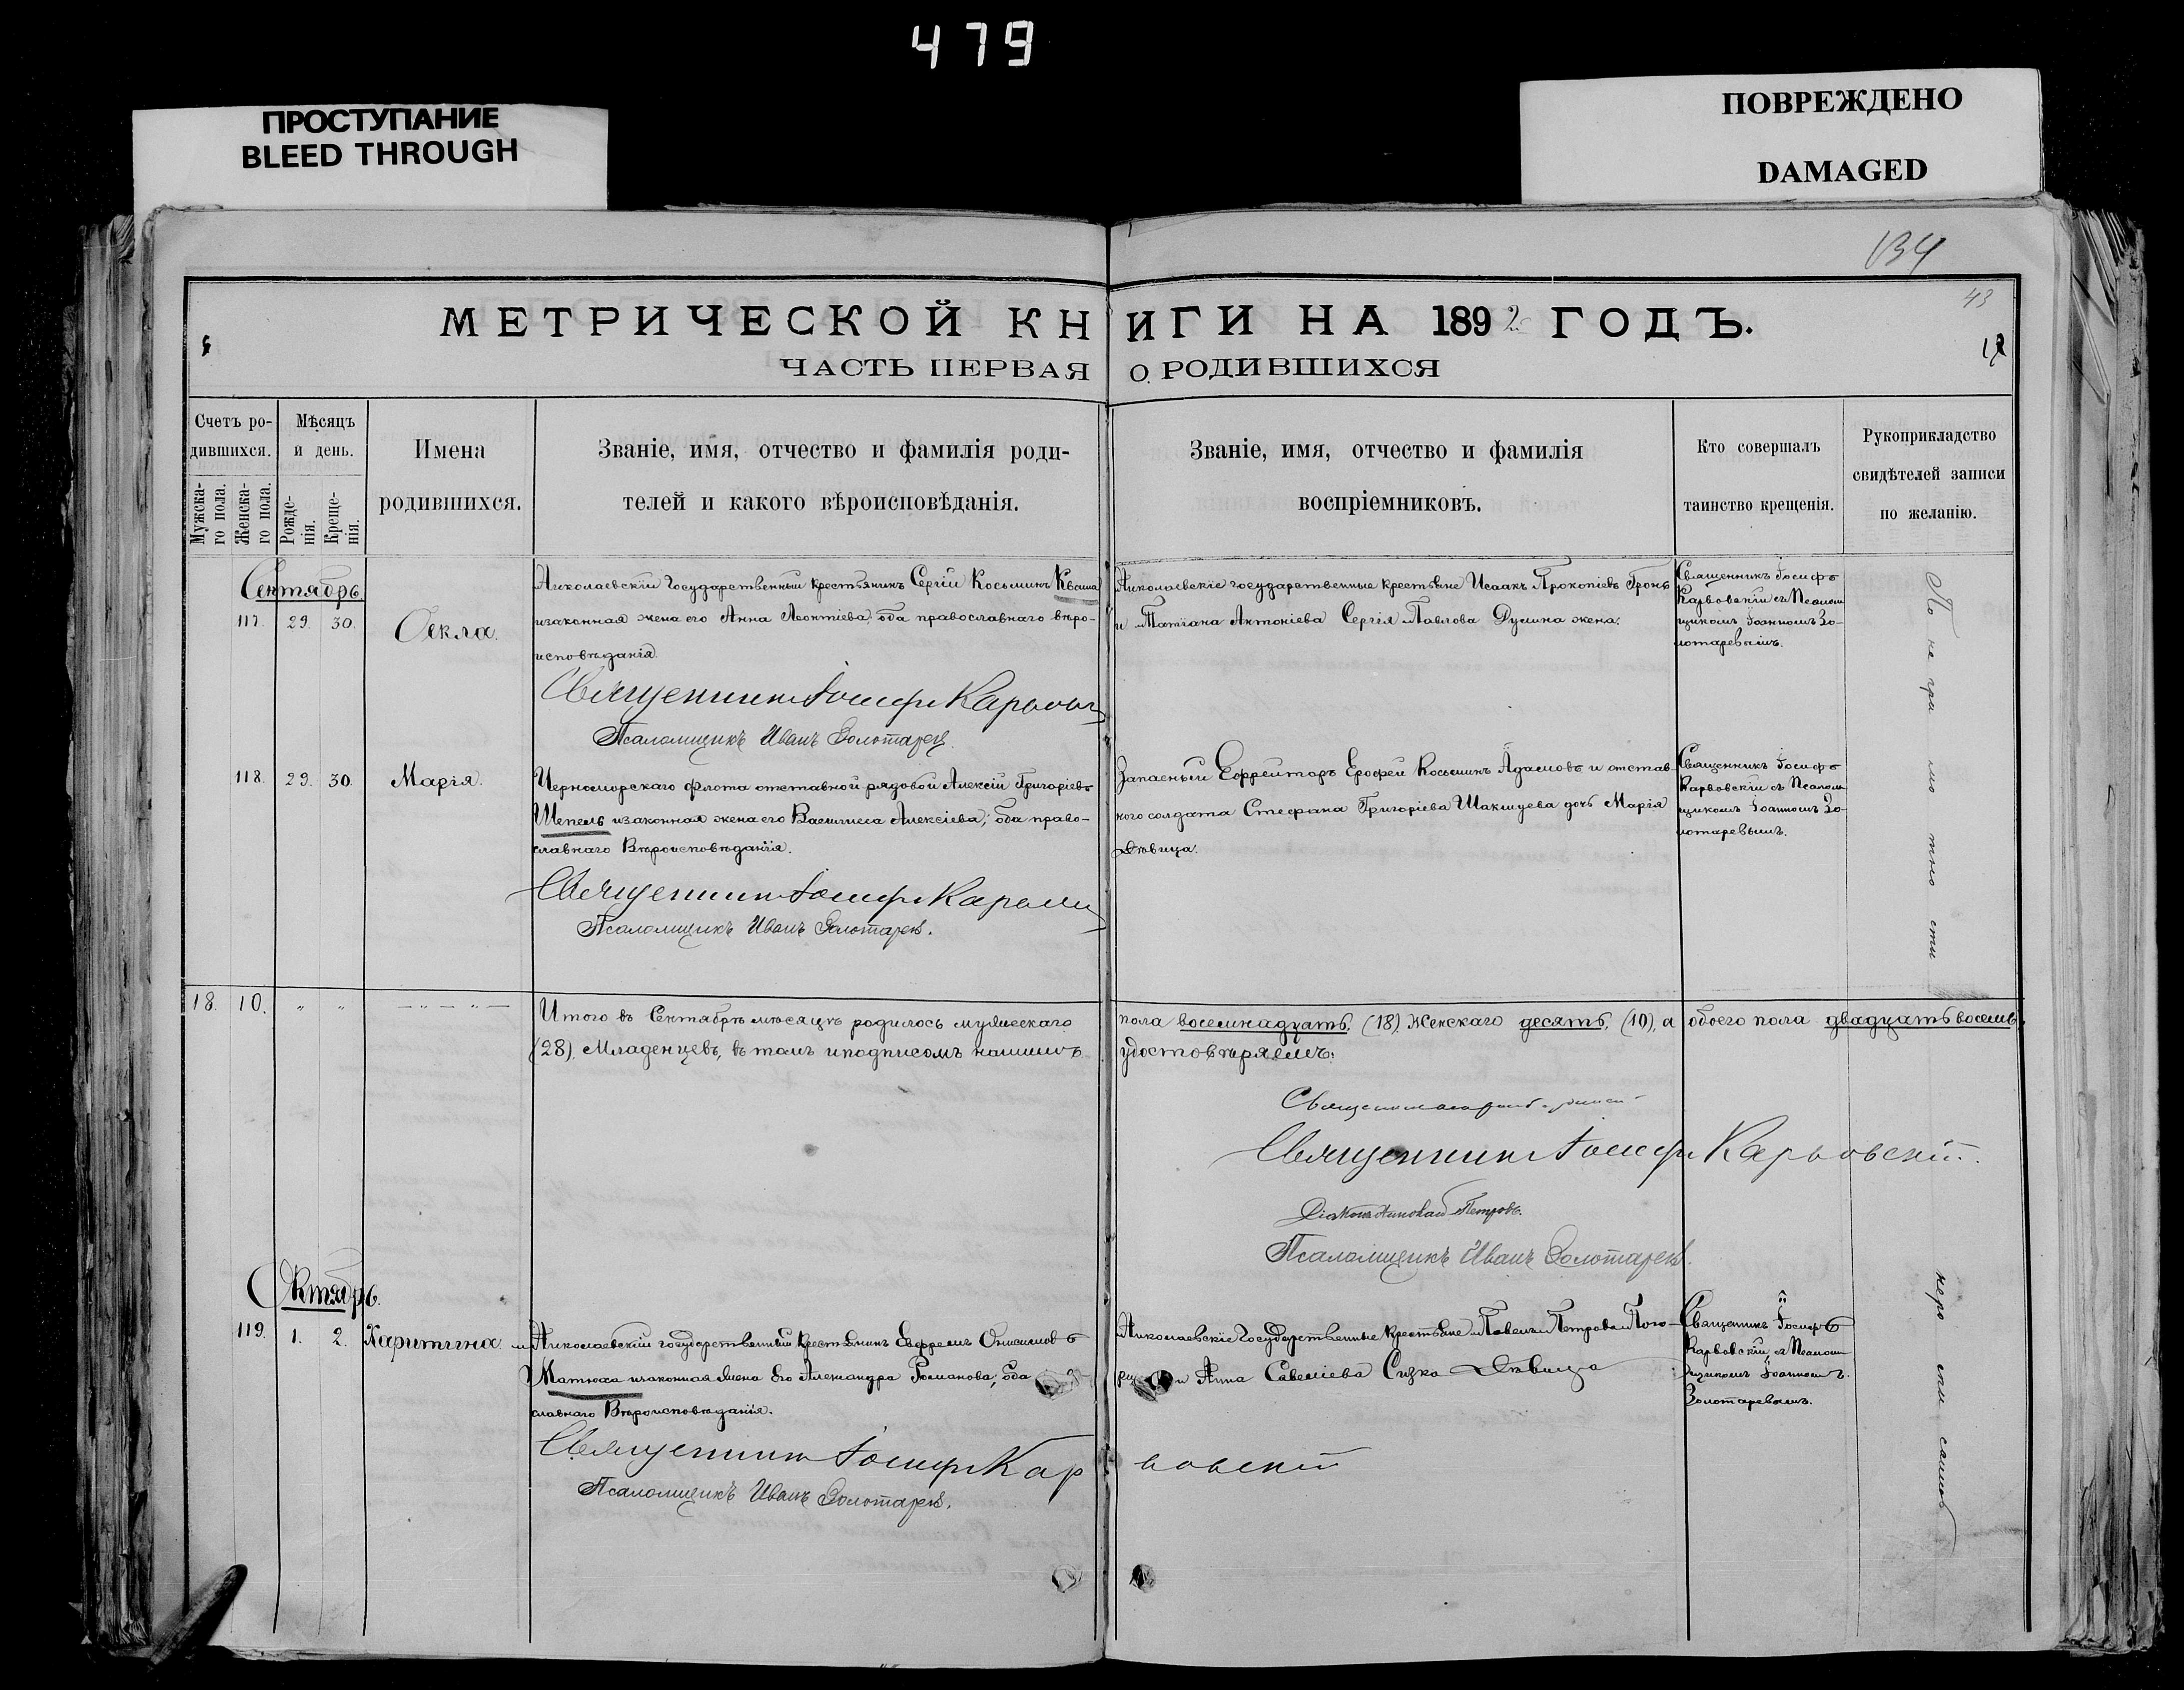 479
ПРОСТУПАНИЕ
BLEED THROUGH
ПОВРЕЖДЕНО
DAMAGED
134
43
МЕТРИЧЕСКОЙ КНИГИ НА 1892 ГОДЪ.
ЧАСТЬ ПЕРВАЯ О РОДИВШИХСЯ
Счетъ ро-
дившихся.
Мужска-
го пола.
Женска-
го пола.
Мѣсяцъ
и день.
Рожде-
нія.
Креще-
нія.
Имена
родившихся.
Званіе, имя, отчество и фамилія роди-
телей и какого вѣроисповѣданія.
Званіе, имя, отчество и фамилія
воспріемниковъ.
Кто совершалъ
таинство крещенія.
Рукоприкладство
свидѣтелей записи
по желанію.
Сентябрь
117. 29. 30.
Ѳекла.
Николаевскій государственный крестьянинъ Сергій Косьминъ Кваша
изаконная жена его Анна Леонтіева, оба православнаго вѣро-
исповѣданія.
Священникъ Іосифъ Карвов
Псаломщикъ Иванъ Золотарев.
Николаевскіе государственные крестьяне Исаакъ Прокопіевъ Гронь
и Татіана Антоніева Сергія Павлова Дулина жена.
Священникъ Іосифъ
Карвовскій съ Псалом
щикомъ Іоанномъ Зо-
лотаревымъ.
118. 29. 30. Марія.
Черноморскаго флота отставной рядовой Алексій Григоріевъ
Шепель изаконная жена его Василисса Алексіева, оба право-
славнаго Вѣроисповѣданія.
Священникъ Іосифъ Карвовс
Псаломщикъ Иванъ Золотарев.
Запасный Ефрейторъ Ерофей Косьминъ Адамовъ и отстав-
ного солдата Стефана Григоріева Шакшуева дочь Марія
дѣвица.
Священникъ Іосифъ
Карвовскій съ Псалом
щикомъ Іоанномъ Зо-
лотаревымъ.
18. 10. " " — " — " —
Итого въ Сентябрѣ мѣсяцѣ родилось мужескаго пола восемнадцать, (18) Женскаго десять, (10), а обоего пола двадцать восемь,
(28), Младенцевъ, въ томъ иподписомъ нашимъ удостовѣряемъ.
Священникъ
Священникъ Іосифъ Карвовскій.
Діаконъ Петровъ.
Псаломщикъ Иванъ Золотарев.
Октябрь.
119. 1. 2. Харитина.
Николаевскій государственный крестьянинъ Ефремъ Онисимовъ
Матюха изаконная жена Его Александра Романова, оба
славнаго Вѣроисповѣданія.
Священникъ Іосифъ Карвовскій
Псаломщикъ Иванъ Золотарев.
Николаевскіе Государственные крестьяне Павелъ Петровъ
и Анна Савеліева Сизко дѣвица
Священникъ Іосифъ
Карвовскій съ Псалом
щикомъ Іоанномъ
Золотаревымъ.